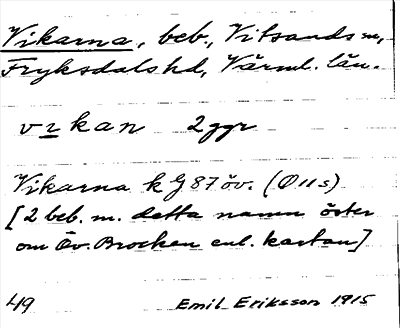 Vikarna, beb., Vitsands sn,
Fryksdals hd, Värml. län.
vɪkan 2 ggr
Vikarna k G 87 öv. (Ø 11 s)
[2 beb. m. detta namn öster
om Öv. Brocken enl. kartan]
49 Emil Eriksson 1915